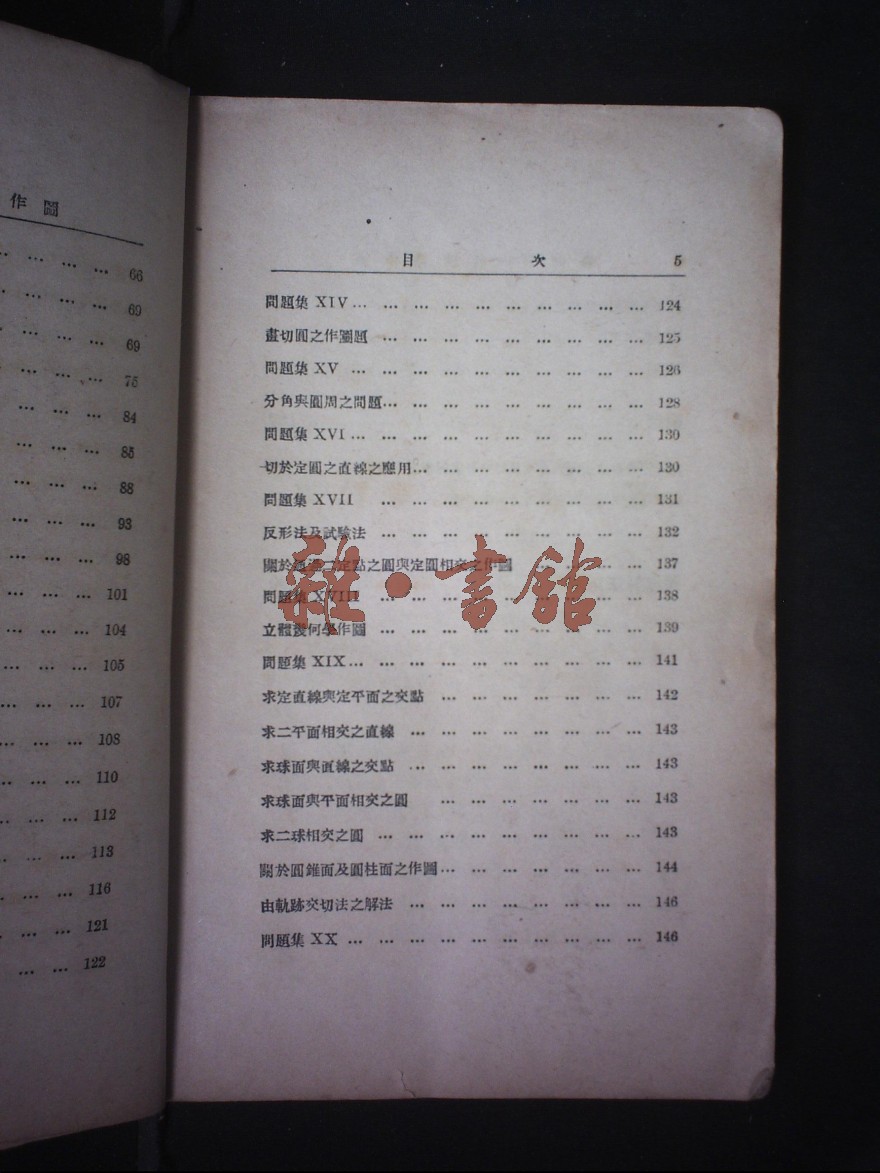 作圖
... ... ... ... 66
... ... ... ... 69
... ... ... ... 69
... ... ... ... 75
... ... ... ... 84
... ... ... 85
... ... ... 88
... ... ... 93
... ... ... 98
... ... ... 101
... ... ... 104
... ... ... 105
... ... ... 107
... ... ... 108
... ... ... 110
... ... ... 112
... ... ... 113
... ... ... 116
... ... ... 121
... ... 122
目 次 5
問題集 XIV ... ... ... ... ... ... ... ... ... ... 124
畫切圓之作圖題 ... ... ... ... ... ... ... ... ... 125
問題集 XV ... ... ... ... ... ... ... ... ... ... 126
分角與圓周之問題 ... ... ... ... ... ... ... ... ... 128
問題集 XVI ... ... ... ... ... ... ... ... ... ... 130
切於定圓之直線之應用 ... ... ... ... ... ... ... ... 130
問題集 XVII ... ... ... ... ... ... ... ... ... 131
反形法及試驗法 ... ... ... ... ... ... ... ... ... 132
關於通過二定點之圓與定圓相交之作圖 ... ... ... ... 137
問題集 XVIII ... ... ... ... ... ... ... ... ... 138
立體幾何學作圖 ... ... ... ... ... ... ... ... ... 139
問題集 XIX ... ... ... ... ... ... ... ... ... ... 141
求定直線與定平面之交點 ... ... ... ... ... ... ... 142
求二平面相交之直線 ... ... ... ... ... ... ... ... 143
求球面與直線之交點 ... ... ... ... ... ... ... ... 143
求球面與平面相交之圓 ... ... ... ... ... ... ... 143
求二球相交之圓 ... ... ... ... ... ... ... ... ... 143
關於圓錐面及圓柱面之作圖 ... ... ... ... ... ... ... 144
由軌跡交切法之解法 ... ... ... ... ... ... ... ... 146
問題集 XX ... ... ... ... ... ... ... ... ... ... 146
雜·書館